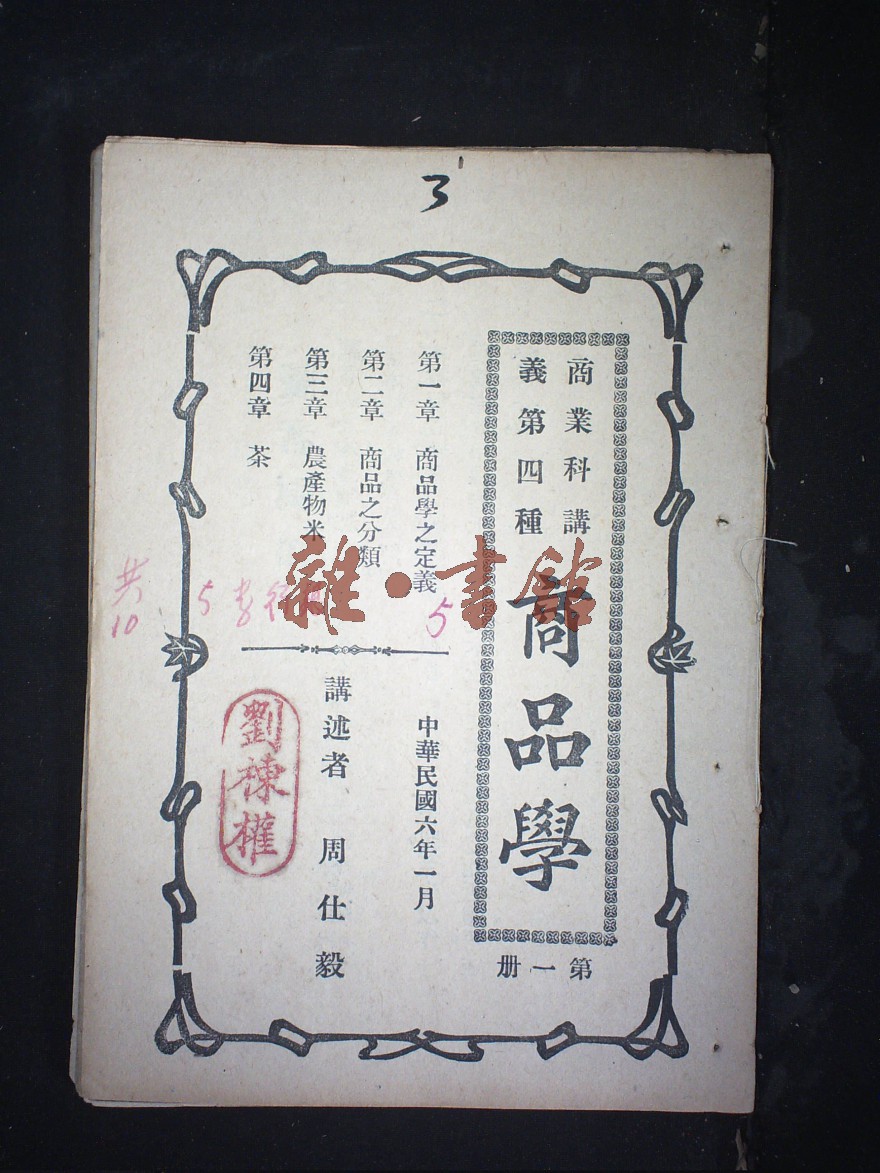 3
商業科講
義第四種
商品學
第一册
第一章 商品學之定義
第二章 商品之分類
第三章 農產物米
第四章 茶
中華民國六年一月
講述者 周仕毅
劉棟權
雜·書館
5
5
共
10